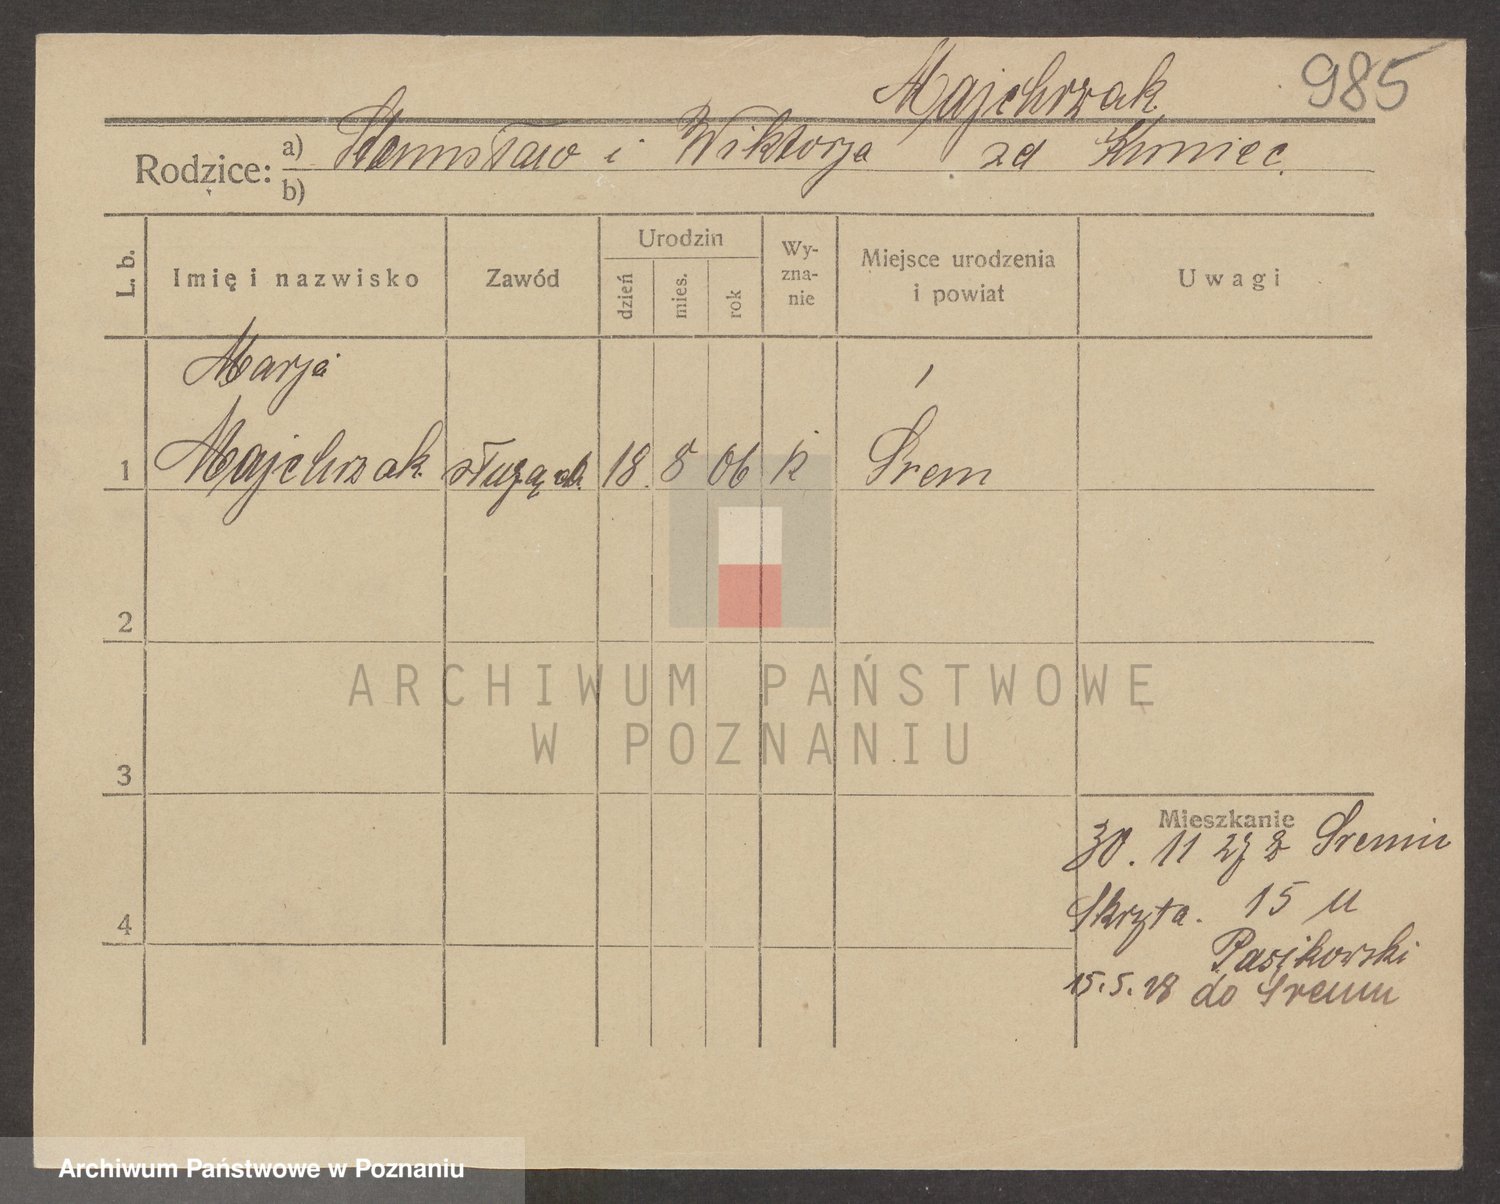 Majchrzak 985
Rodzice: a) Stanisław i Wiktorja zd Kmiec.
b)
L. b. Imię i nazwisko Zawód Urodzin dzień mies. rok Wy-zna-nie Miejsce urodzenia i powiat Uwagi
Marja
1 Majchrzak służąca 18. 8 06 k Śrem
2
ARCHIWUM PAŃSTWOWE
W POZNANIU
3
Mieszkanie
30. 11 27 z Śremu
4 15 u
Pasikowski
15. 5. 28 do Śremu
Archiwum Państwowe w Poznaniu